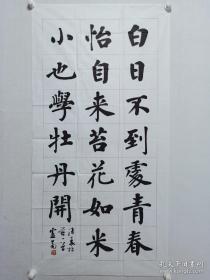 白日不到處青春
怡自来苔花如米
小也學牡丹開